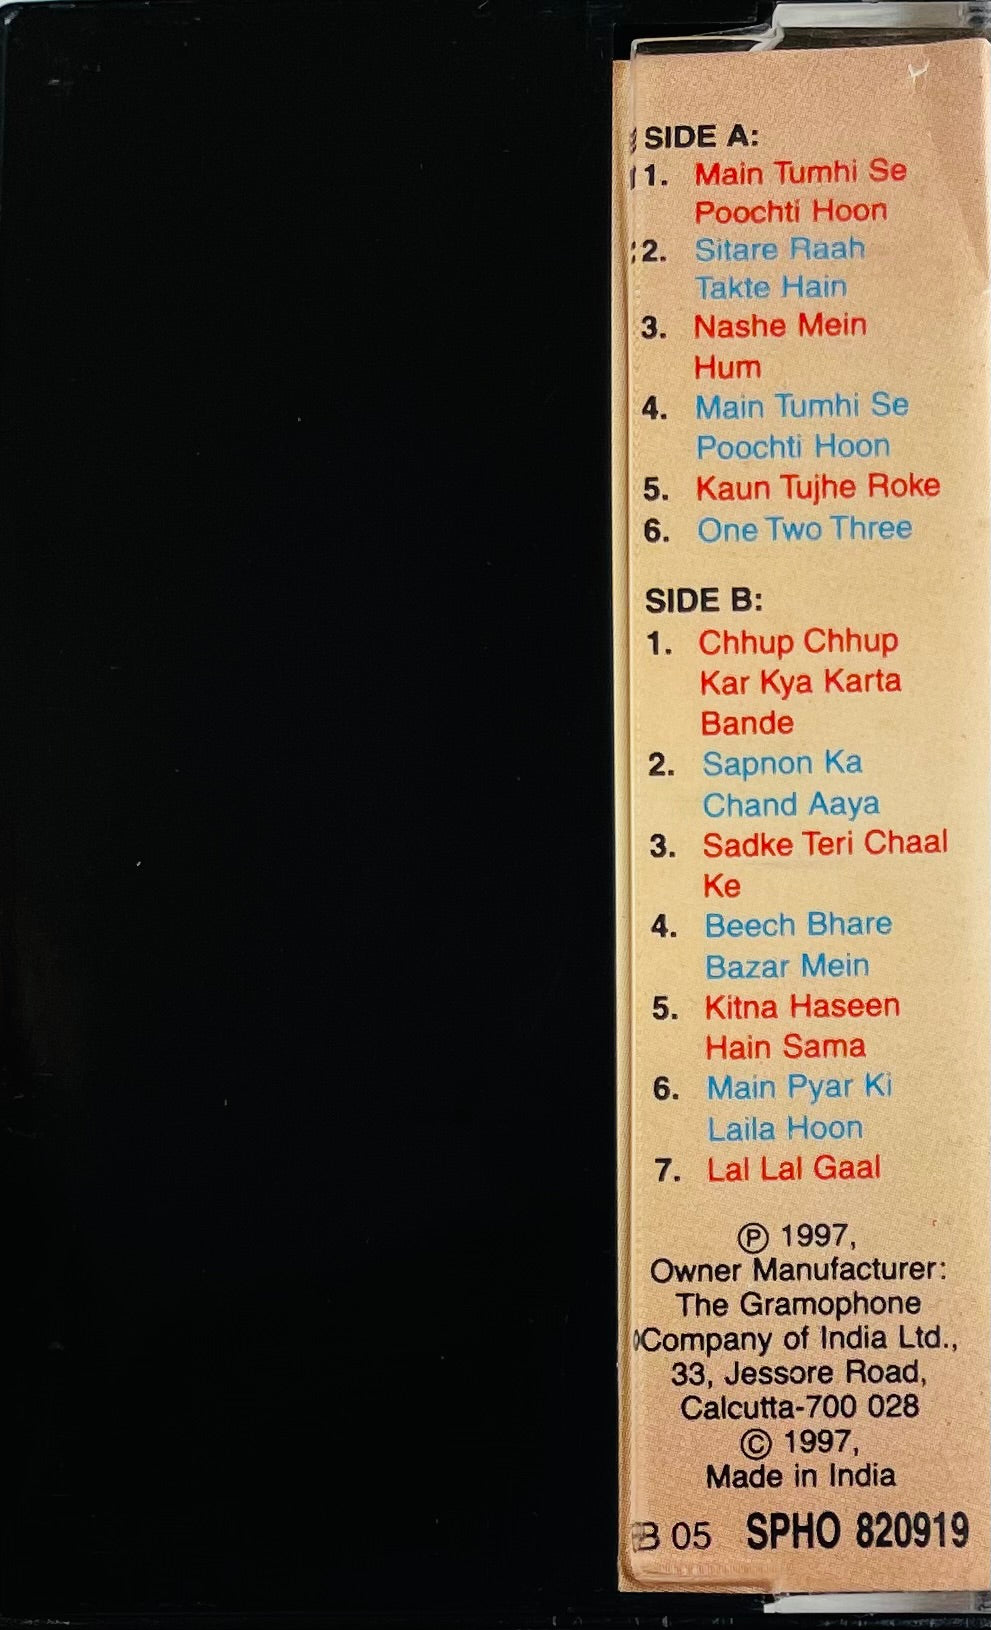 SIDE A:
1. Main Tumhi Se
Poochti Hoon
2. Sitare Raah
Takte Hain
3. Nashe Mein
Hum
4. Main Tumhi Se
Poochti Hoon
5. Kaun Tujhe Roke
6. One Two Three
SIDE B:
1. Chhup Chhup
Kar Kya Karta
Bande
2. Sapnon Ka
Chand Aaya
3. Sadke Teri Chaal
Ke
4. Beech Bhare
Bazar Mein
5. Kitna Haseen
Hain Sama
6. Main Pyar Ki
Laila Hoon
7. Lal Lal Gaal
Ⓟ 1997,
Owner Manufacturer:
The Gramophone
Company of India Ltd.,
33, Jessore Road,
Calcutta-700 028
© 1997,
Made in India
B 05 SPHO 820919